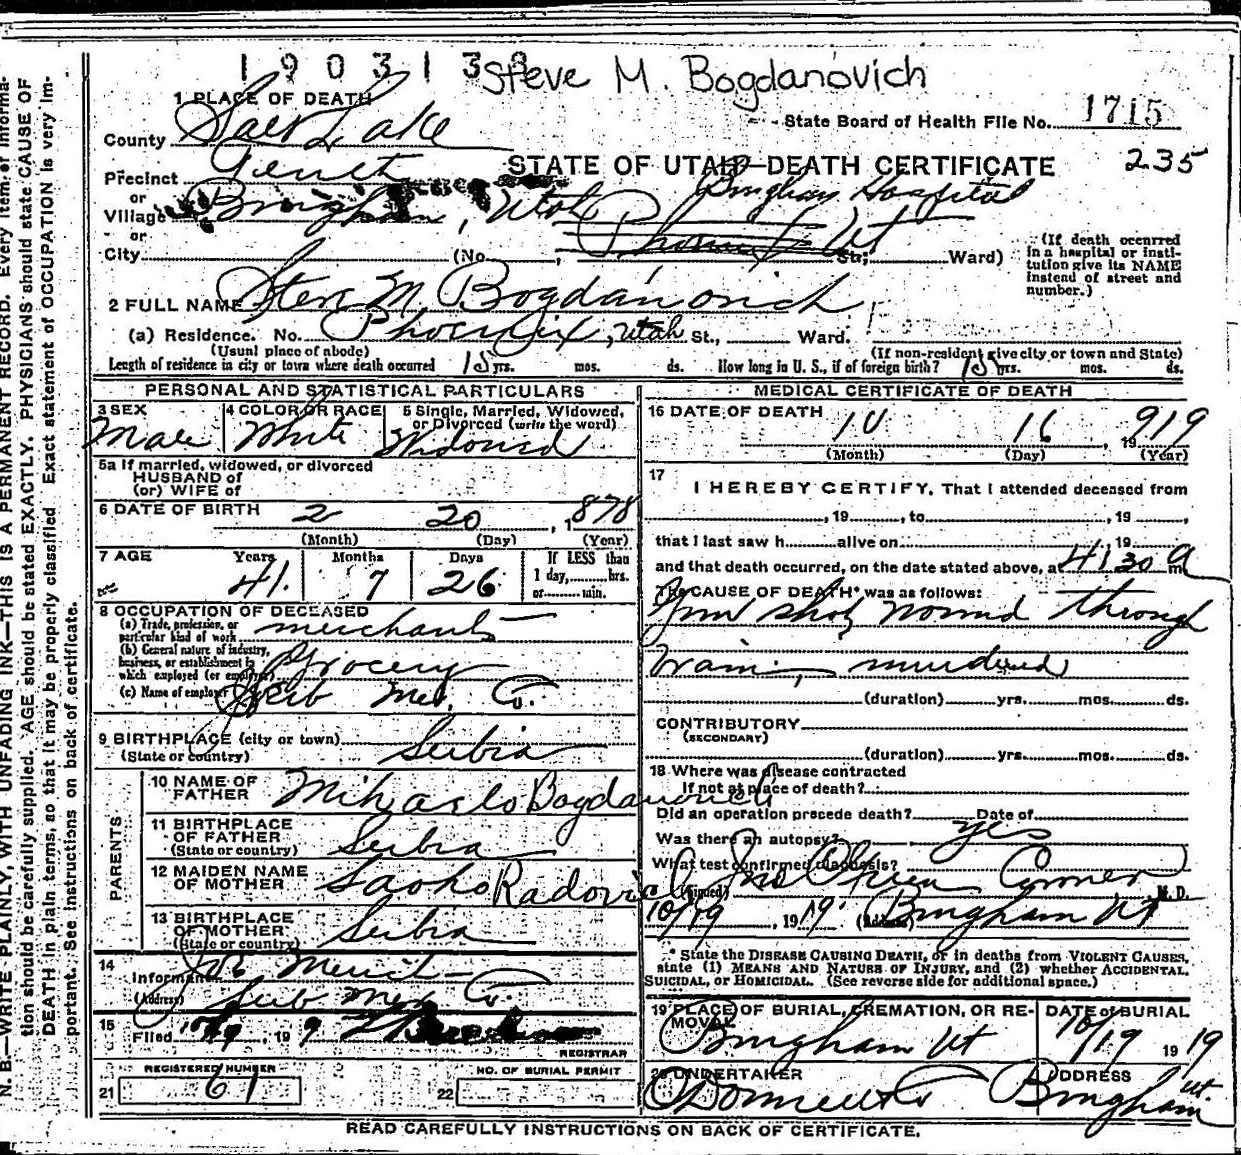 190313
Steve M. Bogdanovich
1 PLACE OF DEATH
State Board of Health File No. 1715
County Salt Lake
STATE OF UTAH—DEATH CERTIFICATE
235
Precinct
or
Village Bingham, Utah
Bingham Hospital
or
City (No. , Phoenix Ut St.; Ward)
(If death occurred in a hospital or institution give its NAME instead of street and number.)
2 FULL NAME Steve M Bogdanovich
(a) Residence. No. Phoenix, Utah St., Ward.
(Usual place of abode)
(If non-resident give city or town and State)
Length of residence in city or town where death occurred 15 yrs. mos. ds. How long in U. S., if of foreign birth? 15 yrs. mos. ds.
PERSONAL AND STATISTICAL PARTICULARS
3 SEX
Male
4 COLOR OR RACE
White
5 Single, Married, Widowed, or Divorced (write the word)
Widowed
5a If married, widowed, or divorced
HUSBAND of
(or) WIFE of
6 DATE OF BIRTH
2 20 , 1878
(Month) (Day) (Year)
7 AGE Years Months Days If LESS than
1 day, hrs.
or min.
41. 7 26
8 OCCUPATION OF DECEASED
(a) Trade, profession, or particular kind of work merchant
(b) General nature of industry, business, or establishment in which employed (or employer) Grocery
(c) Name of employer Serb Mer. Co.
9 BIRTHPLACE (city or town)
(State or country) Serbia
PARENTS
10 NAME OF FATHER Mihaelo Bogdanovich
11 BIRTHPLACE OF FATHER
(State or country) Serbia
12 MAIDEN NAME OF MOTHER Radovic
13 BIRTHPLACE OF MOTHER
(State or country) Serbia
14
Informant
(Address) Serb Mer Co.
15
Filed , 19 9
REGISTRAR
REGISTERED NUMBER
21 61
NO. OF BURIAL PERMIT
22
MEDICAL CERTIFICATE OF DEATH
16 DATE OF DEATH
10 16 , 1919
(Month) (Day) (Year)
17
I HEREBY CERTIFY, That I attended deceased from
, 19 , to , 19 ,
that I last saw h alive on , 19
and that death occurred, on the date stated above, at 4:30 a m.
The CAUSE OF DEATH* was as follows:
Gun shot wound through
brain, murdered
(duration) yrs. mos. ds.
CONTRIBUTORY
(SECONDARY)
(duration) yrs. mos. ds.
18 Where was disease contracted
If not at place of death?
Did an operation precede death? Date of
Was there an autopsy? yes
What test confirmed diagnosis?
(Signed) Coroner M. D.
10/19 , 1919 (Address) Bingham Ut
* State the DISEASE CAUSING DEATH, or in deaths from VIOLENT CAUSES, state (1) MEANS AND NATURE OF INJURY, and (2) whether ACCIDENTAL, SUICIDAL, or HOMICIDAL. (See reverse side for additional space.)
19 PLACE OF BURIAL, CREMATION, OR REMOVAL
Bingham Ut
DATE of BURIAL
10/19 1919
20 UNDERTAKER
O'Donnell & Co
ADDRESS
Bingham Ut.
READ CAREFULLY INSTRUCTIONS ON BACK OF CERTIFICATE.
N. B.—WRITE PLAINLY, WITH UNFADING INK—THIS IS A PERMANENT RECORD. Every item of information should be carefully supplied. AGE should be stated EXACTLY. PHYSICIANS should state CAUSE OF DEATH in plain terms, so that it may be properly classified. Exact statement of OCCUPATION is very important. See instructions on back of certificate.